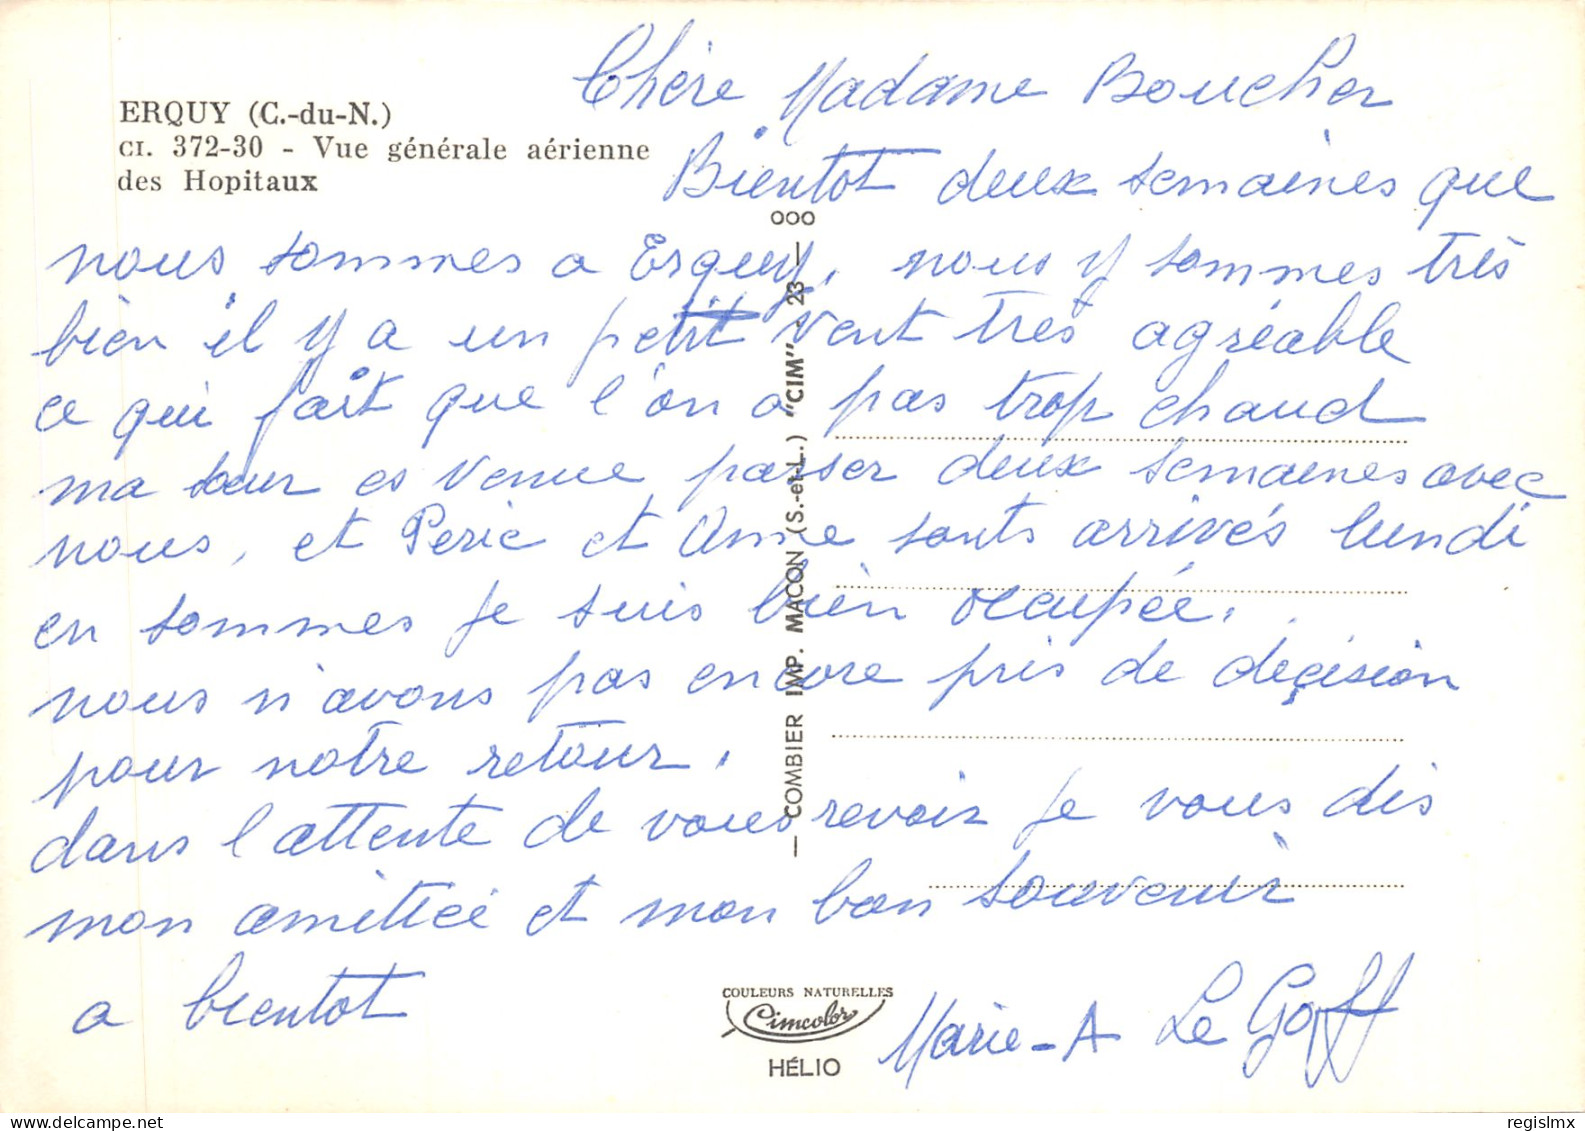 Chère Madame Boucher
ERQUY (C.-du-N.)
CI. 372-30 - Vue générale aérienne
des Hopitaux
Bientot deux semaines que
nous sommes a Erquy, nous y sommes très
bien il y a un petit vent très agréable
ce qui fait que l'on a pas trop chaud
ma sœur es venue passer deux semaines avec
nous, et Peric et Anne sonts arrivés lundi
en sommes je suis bien occupée.
nous n'avons pas encore pris de deçision
pour notre retour.
dans l'attente de vous revoir je vous dis
mon amittié et mon bon souvenir
a bientot
Marie-A Le Goff
— COMBIER IMP. MACON (S.-et-L.) "CIM" 23 — 000
COULEURS NATURELLES
Cimcolor
HÉLIO
delcampe.net
regislmx